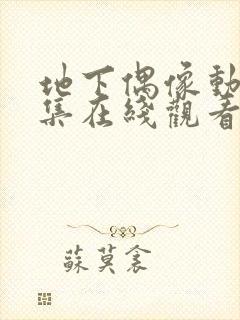 地下偶像動
集在綫觀看
蘇莫衾